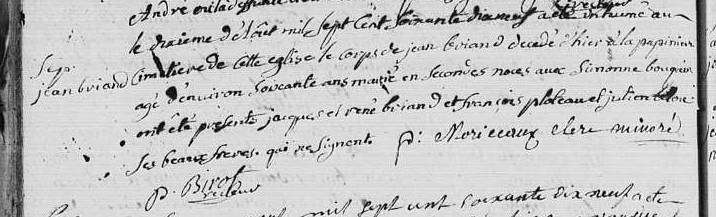 andré
le dixieme d'aout mil sept cent soixante dix neuf a été inhumé au
Sep.
jean briand
Cimetiere de cette eglise le corps de jean briand decedé d'hier à la papinier
agé d'environ soixante ans marié en secondes noces aux Simonne
ont été presents jacques et rené briand et françois ploteau et julien
ses beaux freres qui ne signent. p: Moriceaux clerc minoré
P. Birot
recteur
mil sept cent soixante dix neuf a été